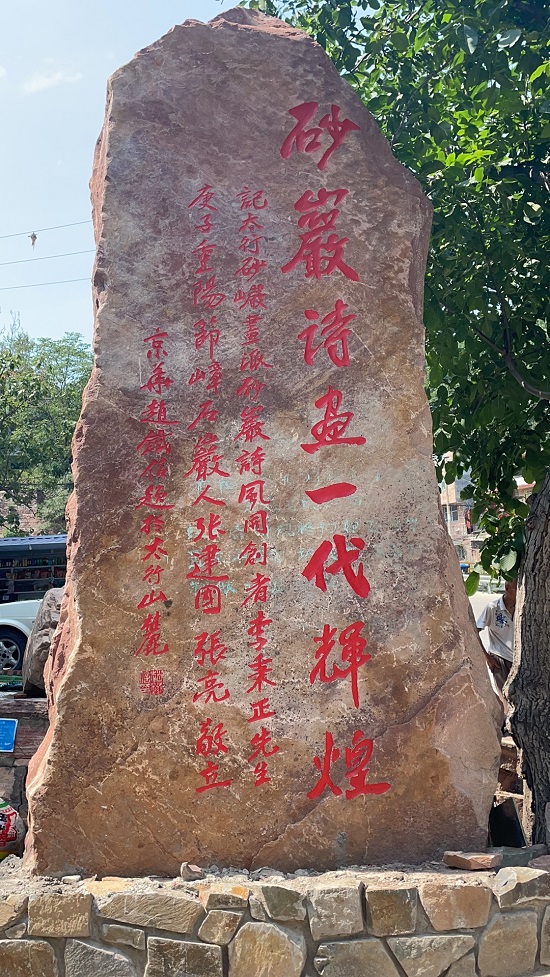 砂巖诗画一代輝煌
記太行砂巖畫派砂巖詩風開創者李秉正先生
庚子重陽節峰石巖人张建国張亮敬立
京華趙鐵信题於太行山麓